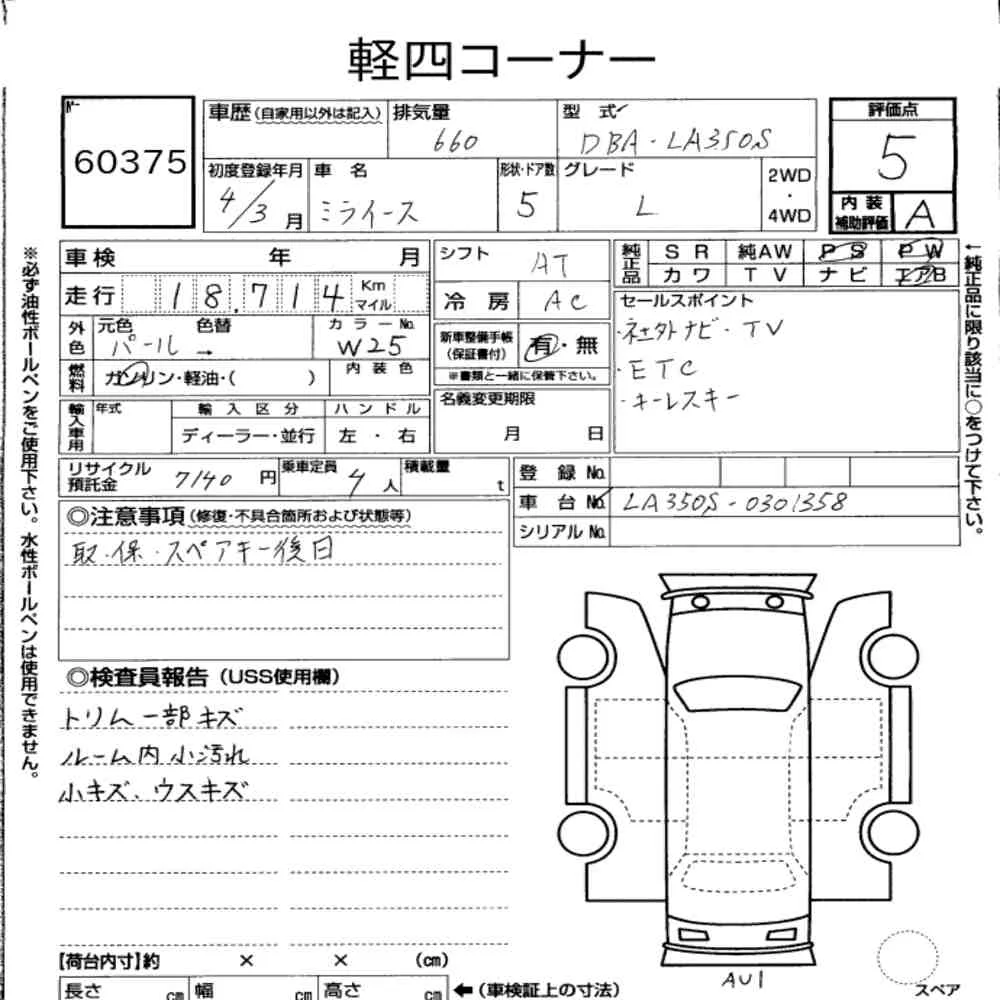 軽四コーナー
60375
車歴(自家用以外は記入) 排気量 型式 評価点
660 DBA-LA350S 5
初度登録年月 車名 形状・ドア数 グレード 2WD・4WD
4/3月 ミライース 5 L
内装補助評価 A
車検 年 月 シフト AT
純正品 SR 純AW PS PW
カワ TV ナビ エアB
走行 18,714 Km マイル 冷房 AC
セールスポイント
外色 元色 色替 カラーNo.
パール → W25
新車整備手帳(保証書付) 有・無
※書類と一緒に保管下さい。
・社外ナビ・TV
・ETC
・キーレスキー
燃料 ガソリン・軽油・( ) 内装色
名義変更期限
月 日
輸入車用 年式 輸入区分 ハンドル
ディーラー・並行 左・右
リサイクル預託金 7140円 乗車定員 4人 積載量 t
登録No.
車台No. LA350S-0301358
シリアルNo.
◎注意事項(修復・不具合箇所および状態等)
取・保・スペアキー後日
◎検査員報告(USS使用欄)
トリム一部キズ
ルーム内小汚れ
小キズ、ウスキズ
【荷台内寸】約 × × (cm)
長さ cm 幅 cm 高さ cm ←(車検証上の寸法)
AU1
スペア
※必ず油性ボールペンをご使用下さい。水性ボールペンは使用できません。
←純正品に限り該当に○をつけて下さい。